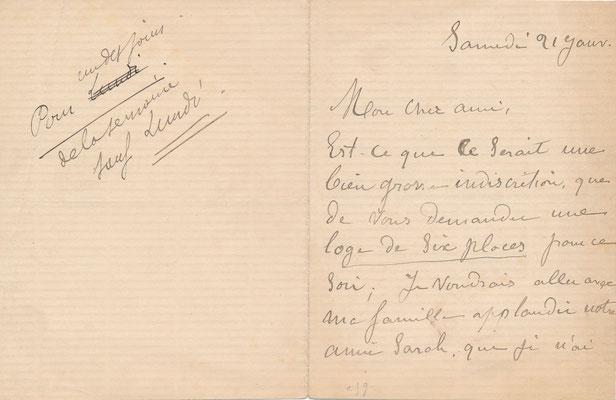 un des jours
Pour Lundi
de la semaine
sauf Lundi !
Samedi 21 Janv.
Mon cher ami,
Est-ce que ce serait une
bien grosse indiscrétion, que
de vous demander une
loge de six places pour ce
Soir; Je voudrais aller avec
ma famille applaudir notre
amie Sarah, que je n'ai